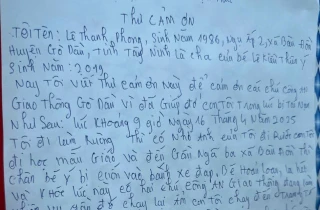 THƯ CẢM ƠN
TÔI TÊN: Lê Thanh Phong, Sinh Năm 1986, Ngụ Ấp 2, xã Bàu Đồn
Huyện Gò Dầu, Tỉnh Tây Ninh là cha của bé Lê Kiều Thiên Ý
Sinh Năm: 2019
Nay Tôi viết Thư cảm ơn này để cảm ơn các chú Công An
Giao Thông Gò Dầu vì đã Giúp đỡ con Tôi Trong lúc bị Tai Nạn
Như Sau: lúc khoảng 9 giờ Ngày 16 Tháng 4 Năm 2025
Tôi đi làm Ruộng Thì có Nhờ Anh của Tôi đi Rước con Tôi
đi học mẫu Giáo và đến Gần Ngã ba xã Bàu Đồn Thì
chân bé Ý bị cuốn vào bánh xe đạp, bé Hoản Loạn, la hét
và khóc lúc này có hai chú Công An Giao Thông đang làm
vụ Gần đó chạy lại Ẩm con Tôi chạy đến Trung